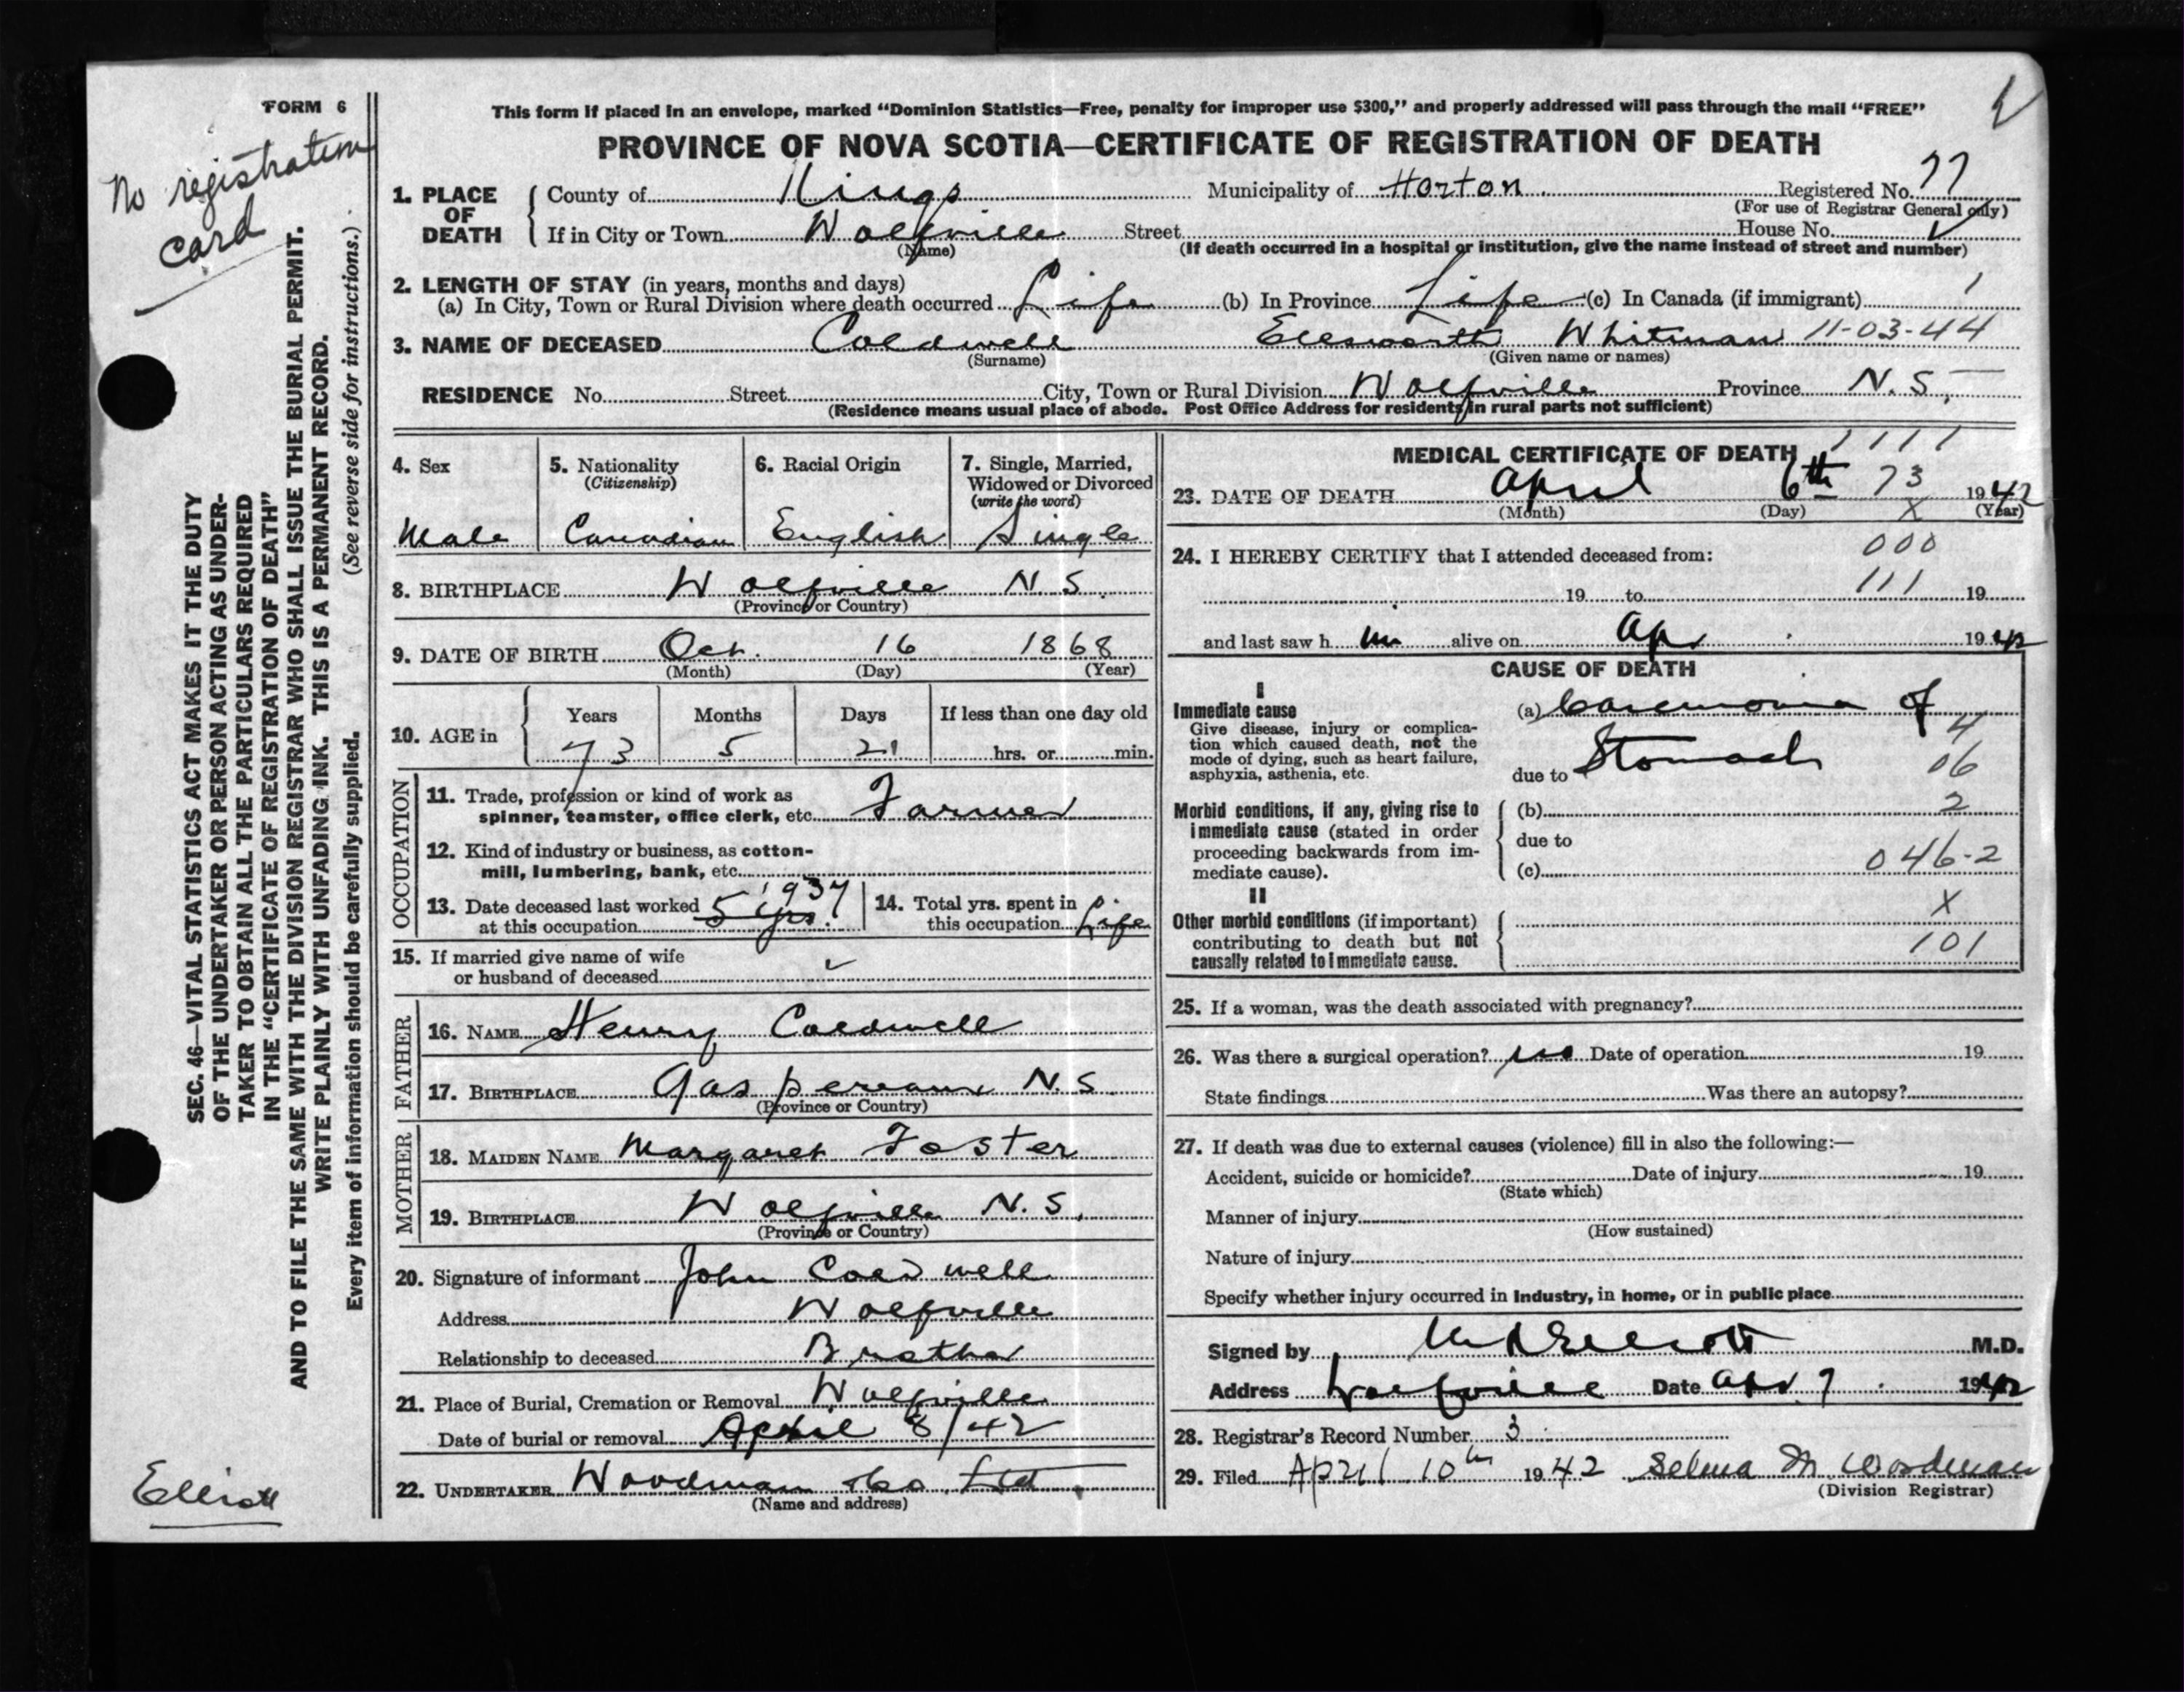 FORM 6
No registration
card
This form if placed in an envelope, marked “Dominion Statistics—Free, penalty for improper use $300,” and properly addressed will pass through the mail “FREE”
PROVINCE OF NOVA SCOTIA—CERTIFICATE OF REGISTRATION OF DEATH
1. PLACE OF DEATH County of Kings Municipality of Horton Registered No. 77
(For use of Registrar General only)
If in City or Town Wolfville Street House No.
(Name) (If death occurred in a hospital or institution, give the name instead of street and number)
2. LENGTH OF STAY (in years, months and days)
(a) In City, Town or Rural Division where death occurred Life (b) In Province Life (c) In Canada (if immigrant) 1
3. NAME OF DECEASED Coldwell Ellsworth Whitman 11-03-44
(Surname) (Given name or names)
RESIDENCE No. Street City, Town or Rural Division Wolfville Province N.S.
(Residence means usual place of abode. Post Office Address for residents in rural parts not sufficient)
4. Sex 5. Nationality (Citizenship) 6. Racial Origin 7. Single, Married, Widowed or Divorced (write the word)
Male Canadian English Single
8. BIRTHPLACE Wolfville N.S.
(Province or Country)
9. DATE OF BIRTH Oct. 16 1868
(Month) (Day) (Year)
10. AGE in Years Months Days If less than one day old
73 5 21 hrs. or min.
OCCUPATION
11. Trade, profession or kind of work as
spinner, teamster, office clerk, etc. Farmer
12. Kind of industry or business, as cotton-
mill, lumbering, bank, etc.
13. Date deceased last worked at this occupation 5 yrs. 1937 14. Total yrs. spent in this occupation Life
15. If married give name of wife
or husband of deceased
FATHER
16. NAME Henry Coldwell
17. BIRTHPLACE Gaspereaux N.S.
(Province or Country)
MOTHER
18. MAIDEN NAME Margaret Foster
19. BIRTHPLACE Wolfville N.S.
(Province or Country)
20. Signature of informant John Coldwell
Address Wolfville
Relationship to deceased Brother
21. Place of Burial, Cremation or Removal Wolfville
Date of burial or removal April 8/42
22. UNDERTAKER Woodman & Co. Ltd.
(Name and address)
MEDICAL CERTIFICATE OF DEATH 1111
23. DATE OF DEATH April 6th 73 1942
(Month) (Day) X (Year)
24. I HEREBY CERTIFY that I attended deceased from: 000
19 to 111 19
and last saw h im alive on Ap 1942
CAUSE OF DEATH
I
Immediate cause
Give disease, injury or complica-
tion which caused death, not the
mode of dying, such as heart failure,
asphyxia, asthenia, etc.
(a) Carcinoma of
4
due to Stomach 06
Morbid conditions, if any, giving rise to
immediate cause (stated in order
proceeding backwards from im-
mediate cause).
(b) 2
due to
(c) 046-2
II
Other morbid conditions (if important)
contributing to death but not
causally related to immediate cause.
X
101
25. If a woman, was the death associated with pregnancy?
26. Was there a surgical operation? no Date of operation 19
State findings Was there an autopsy?
27. If death was due to external causes (violence) fill in also the following:—
Accident, suicide or homicide? Date of injury 19
(State which)
Manner of injury
(How sustained)
Nature of injury
Specify whether injury occurred in Industry, in home, or in public place
Signed by Elliott M.D.
Address Wolfville Date Apr 7 1942
28. Registrar's Record Number 3
29. Filed April 10th 1942 Selma M. Woodman
(Division Registrar)
SEC. 46—VITAL STATISTICS ACT MAKES IT THE DUTY
OF THE UNDERTAKER OR PERSON ACTING AS UNDER-
TAKER TO OBTAIN ALL THE PARTICULARS REQUIRED
IN THE “CERTIFICATE OF REGISTRATION OF DEATH”
AND TO FILE THE SAME WITH THE DIVISION REGISTRAR WHO SHALL ISSUE THE BURIAL PERMIT.
WRITE PLAINLY WITH UNFADING INK. THIS IS A PERMANENT RECORD.
Every item of information should be carefully supplied. (See reverse side for instructions.)
Elliott